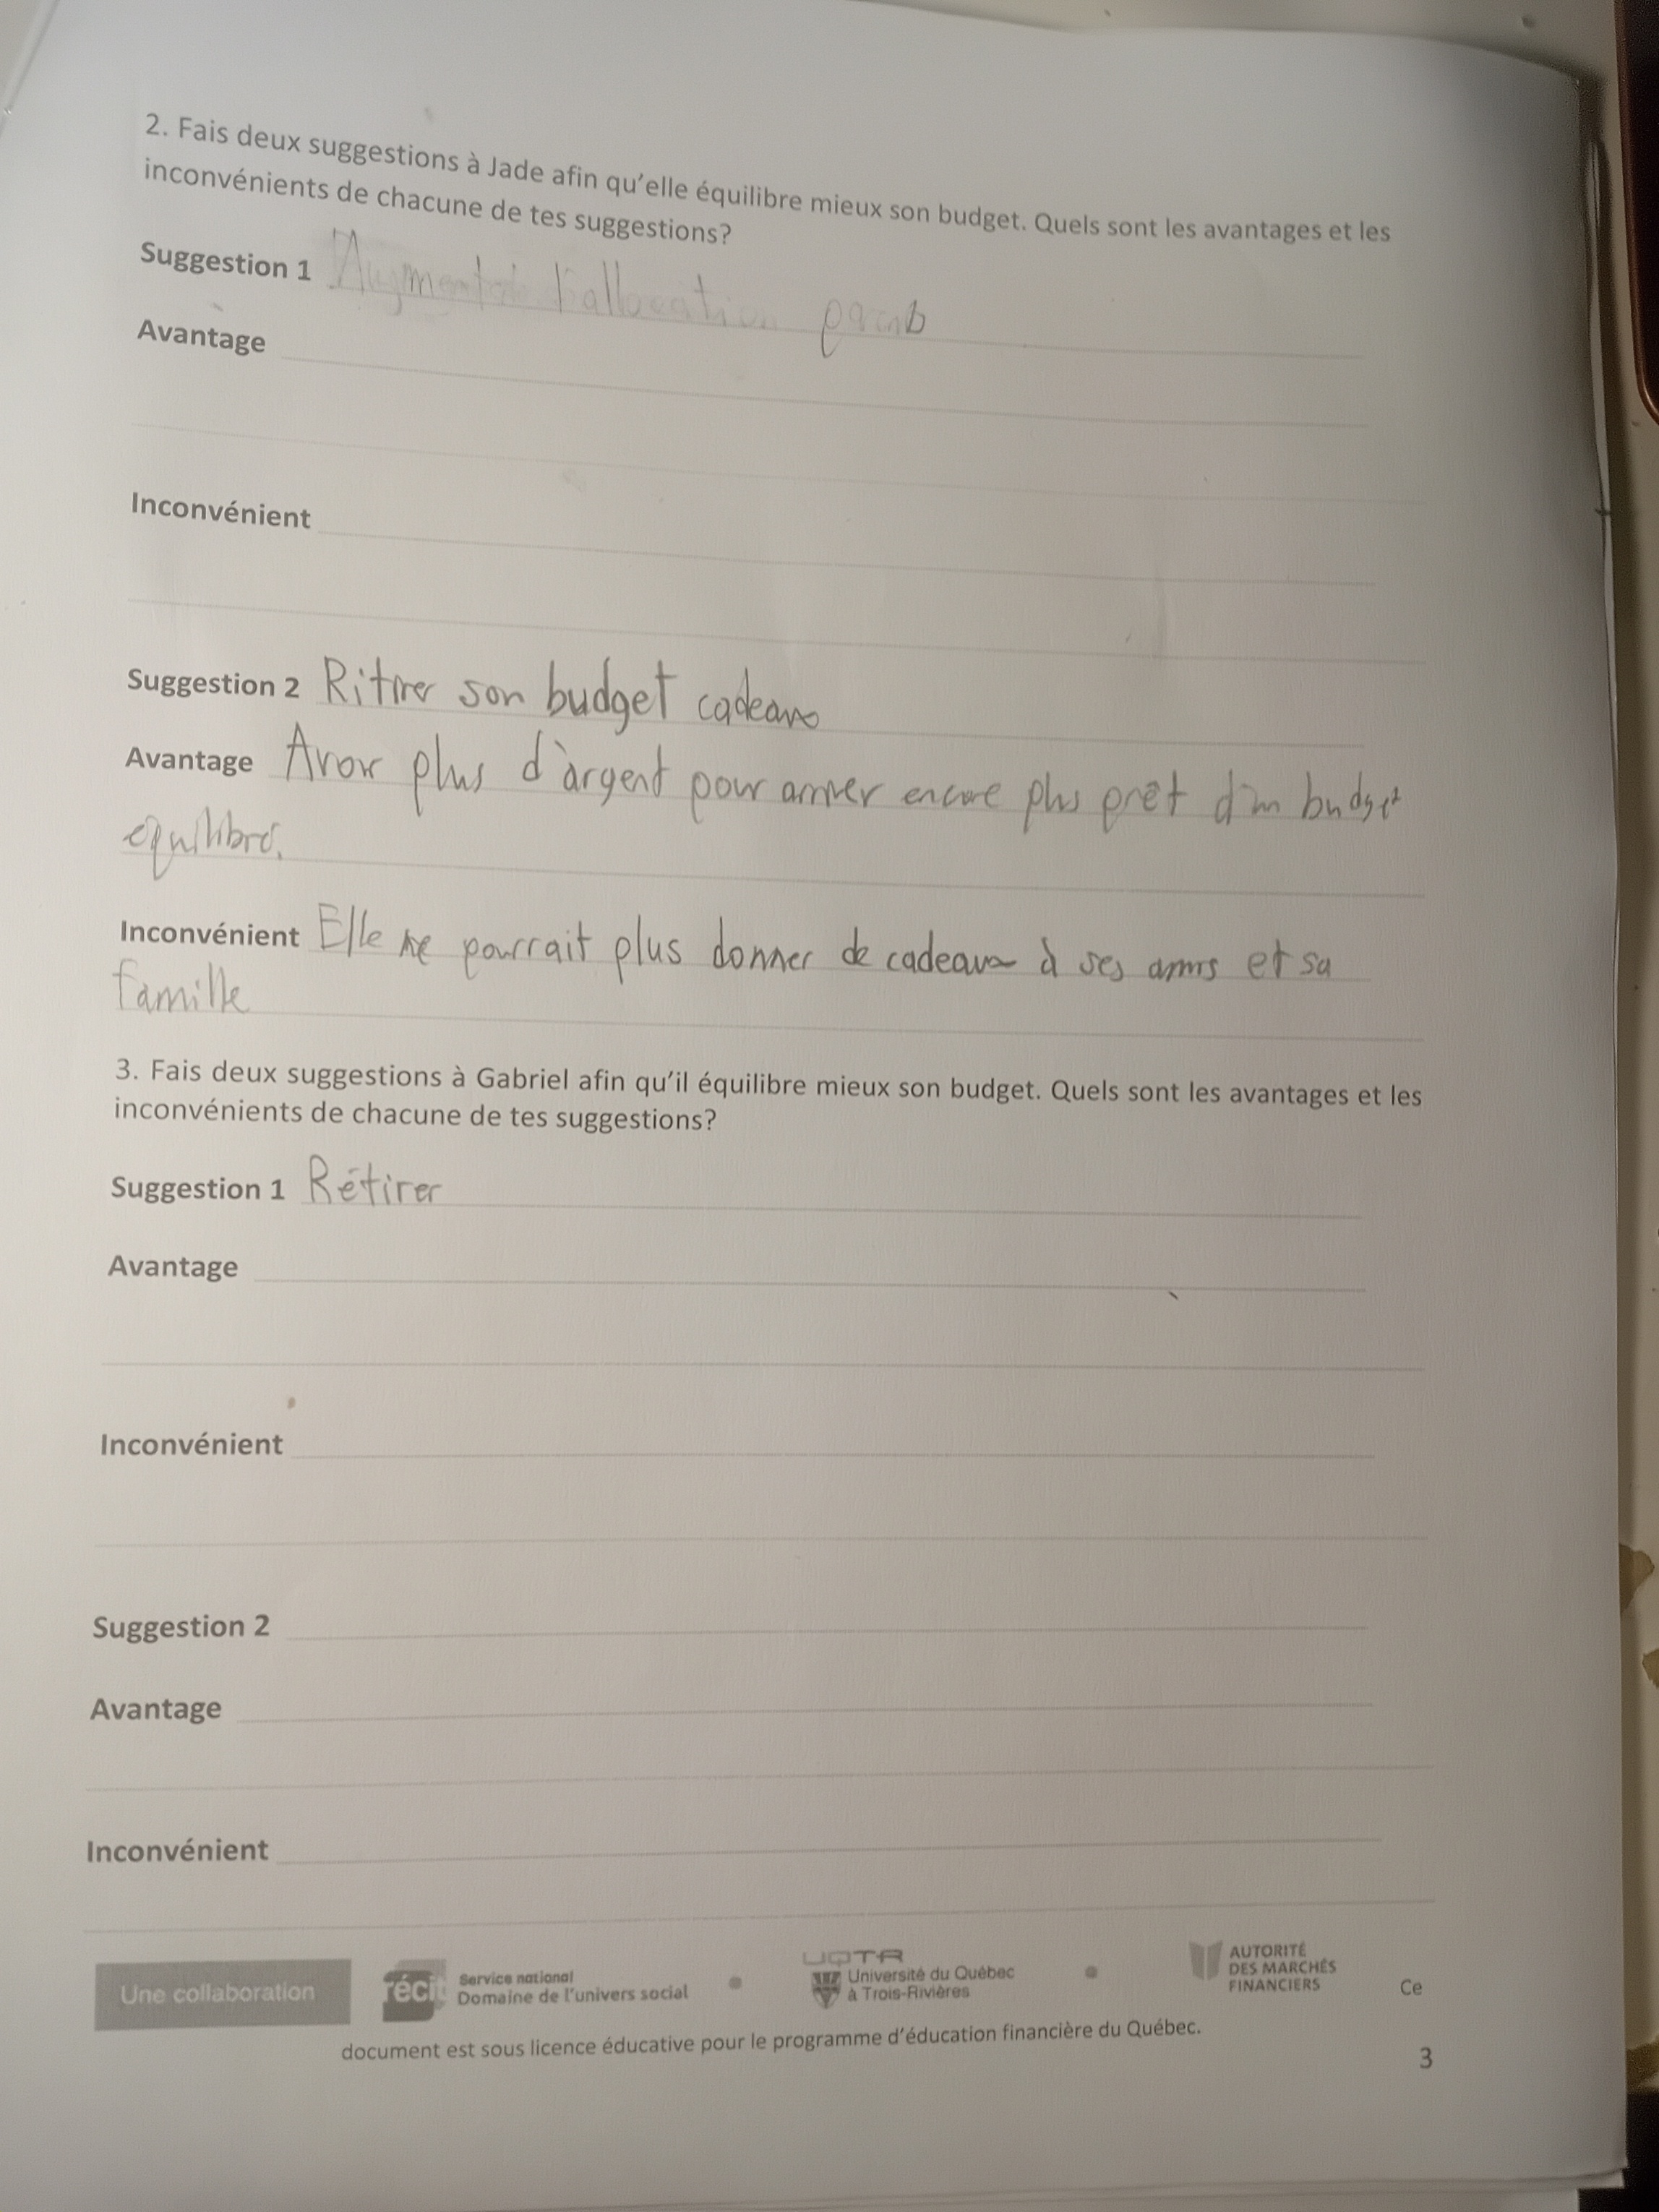 2. Fais deux suggestions à Jade afin qu'elle équilibre mieux son budget. Quels sont les avantages et les
inconvénients de chacune de tes suggestions?
Suggestion 1 l'allocation
Avantage
Inconvénient
Suggestion 2 son budget cadeaux
Avantage Avoir plus d'argent pour arriver encore plus prêt d'un budget
équilibré.
Inconvénient Elle ne pourrait plus donner de cadeaux à ses amis et sa
famille
3. Fais deux suggestions à Gabriel afin qu'il équilibre mieux son budget. Quels sont les avantages et les
inconvénients de chacune de tes suggestions?
Suggestion 1 Rétirer
Avantage
Inconvénient
Suggestion 2
Avantage
Inconvénient
Une collaboration
récit Service national
Domaine de l'univers social
UQTR
Université du Québec
à Trois-Rivières
AUTORITÉ
DES MARCHÉS
FINANCIERS
Ce
document est sous licence éducative pour le programme d'éducation financière du Québec.
3